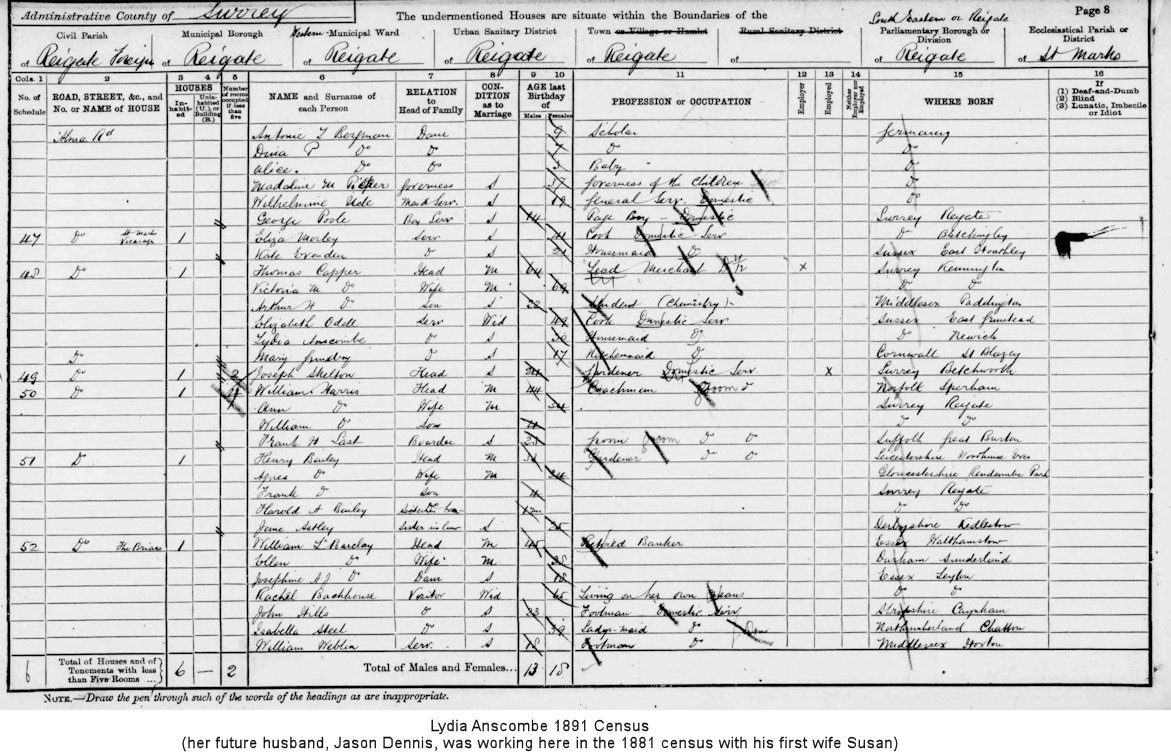 Administrative County of Surrey
The undermentioned Houses are situate within the Boundaries of the
Page 8
Civil Parish
of Reigate Foreign
Municipal Borough
of Reigate
Western Municipal Ward
of Reigate
Urban Sanitary District
of Reigate
Town or Village or Hamlet
of Reigate
Rural Sanitary District
of
South Eastern or Reigate
Parliamentary Borough or Division
of Reigate
Ecclesiastical Parish or District
of St Marks
Cols. 1 2 3 4 5 6 7 8 9 10 11 12 13 14 15 16
No. of Schedule
ROAD, STREET, &c., and No. or NAME of HOUSE
HOUSES
Inhabited
Uninhabited (U.) or Building (B.)
Number of rooms occupied if less than five
NAME and Surname of each Person
RELATION to Head of Family
CONDITION as to Marriage
AGE last Birthday of
Males Females
PROFESSION or OCCUPATION
Employer
Employed
Neither Employer nor Employed
WHERE BORN
If
(1) Deaf-and-Dumb
(2) Blind
(3) Lunatic, Imbecile or Idiot
Alma Rd Antonie Daur 9 Scholar Germany
Do Do 7 Do Do
Alice. Do Do Baby Do
Madaline M Governess S Governess of the Children Do
Wilhelmine Maid Serv. S 19 General Serv. Domestic Do
George Poole Boy Serv S 14 Page Boy - Domestic Surrey Reigate
47 Do St Marks Vicarage 1 Eliza Morley Serv S Cook Domestic Serv Do Bletchingley
Kate Evenden Do S 21 Housemaid Do Sussex East Hoathley
48 Do 1 Thomas Capper Head M 64 Lead Merchant X Surrey Kennington
Victoria M Do Wife M 69 Do Do
Arthur H Do Son S 22 Student (Chemistry) Middlesex Paddington
Elizabeth Odell Serv Wid 49 Cook Domestic Serv Sussex East Grinstead
Lydia Anscombe Do S 30 Housemaid Do Do Newick
Do Mary Do S 17 Kitchenmaid Do Cornwall St Blazey
49 Do 1 2 Joseph Skelton Head S 24 Gardener Domestic Serv X Surrey Betchworth
50 Do 1 4 William Harris Head M 44 Coachman Groom Do Norfolk Sporham
Ann Do Wife M 34 Surrey Reigate
William Do Son 4 Do Do
Frank H Last Boarder S 23 Groom Groom Do Do Suffolk Great Barton
51 Do 1 Henry Bailey Head M Gardener Do Do Leicestershire Woodhouse Eves
Agnes Do Wife M 34 Gloucestershire Rendcombe Park
Frank Do Son 4 Surrey Reigate
Harold A Bailey Do Do
Jane Astley Sister in law S 25 Derbyshire Kedleston
52 Do The Briars 1 William L Barclay Head M 45 Retired Banker Essex Walthamstow
Ellen Do Wife M 38 Durham Sunderland
Josephine Do Daur S 18 Essex Leyton
Rachel Backhouse Visitor Wid 65 Living on her own Means Do Do
John Hills Do S 23 Footman Domestic Serv Shropshire Caynham
Isabella Steel Do S 39 Ladys-maid Do Northumberland Chatton
William Weblin Serv. S 18 Footman Do Middlesex Hoxton
6 Total of Houses and of Tenements with less than Five Rooms ... 6 — 2 Total of Males and Females... 13 18
NOTE.—Draw the pen through such of the words of the headings as are inappropriate.
Lydia Anscombe 1891 Census
(her future husband, Jason Dennis, was working here in the 1881 census with his first wife Susan)